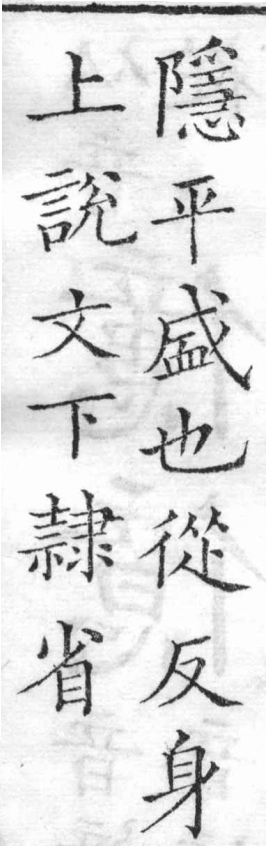 隱平盛也從反身
上說文下隸省